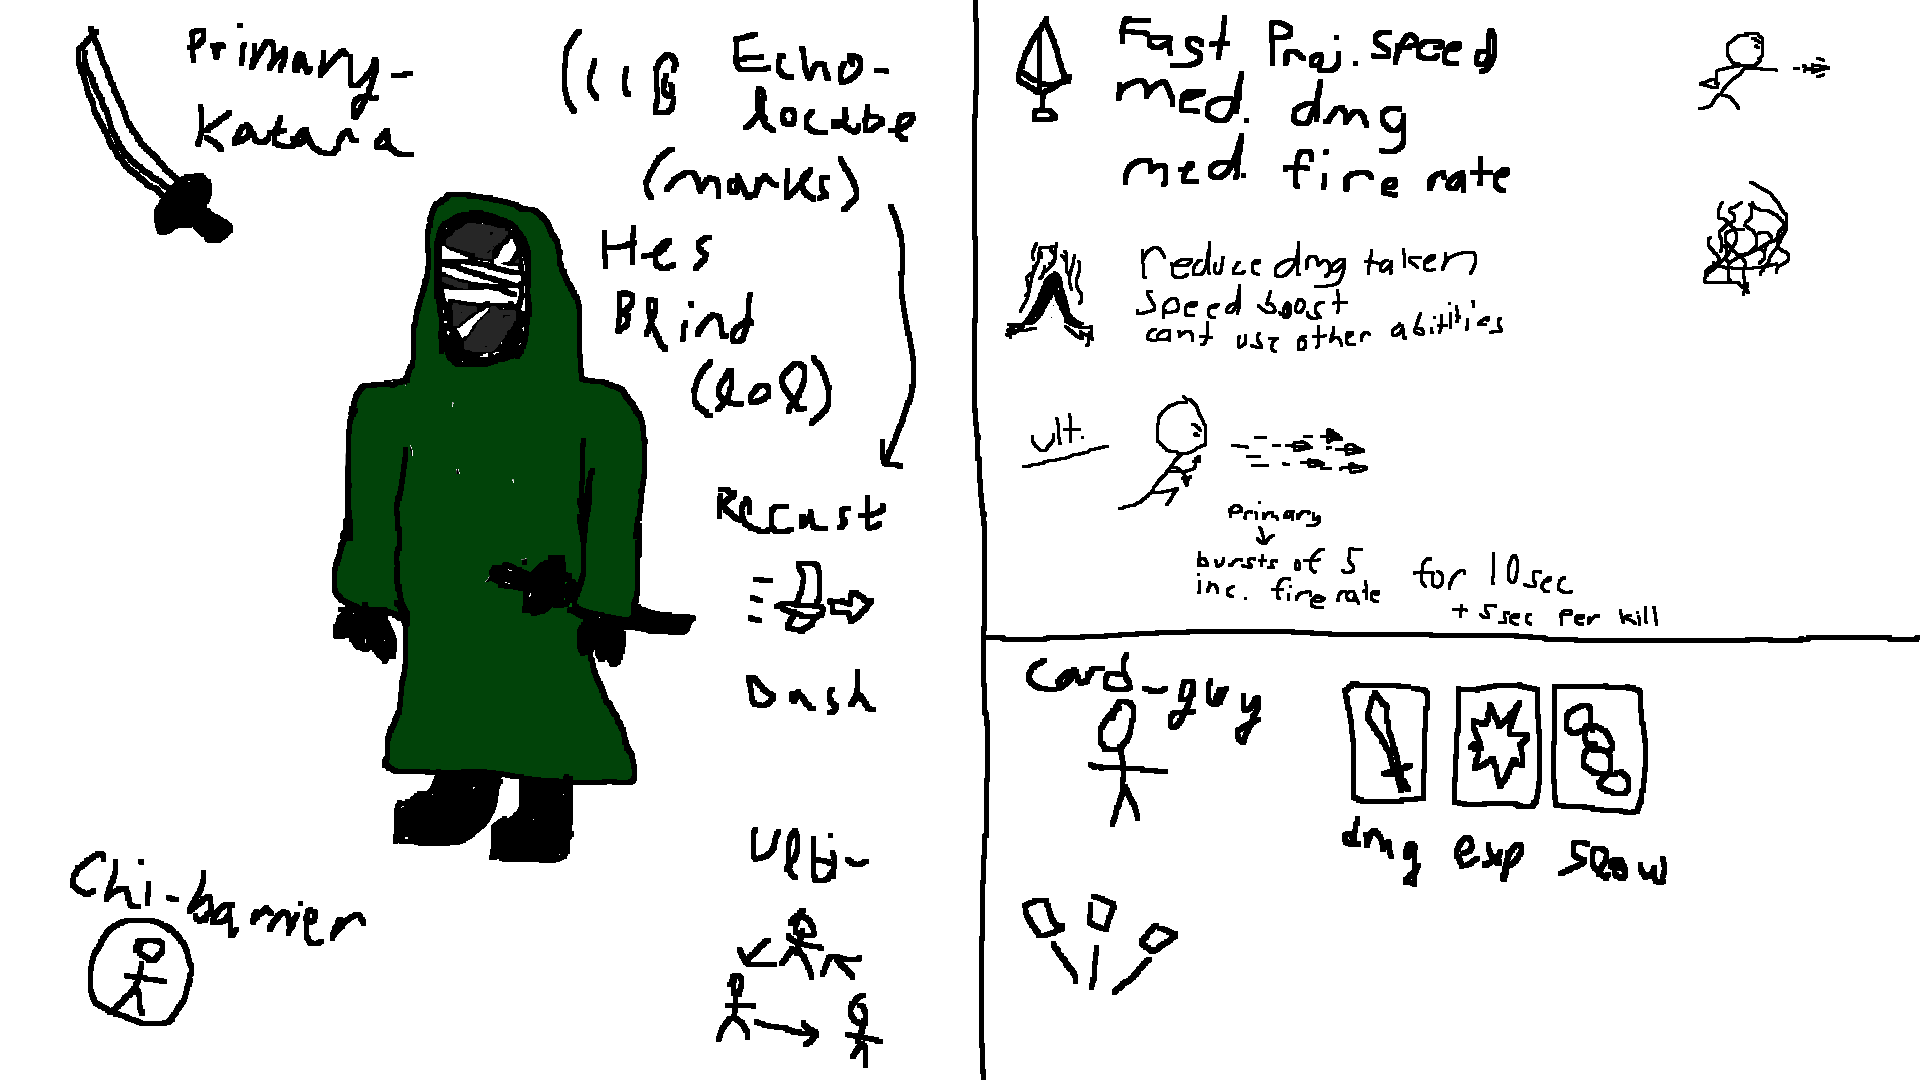 Primary-
Katana
Echo-
locate
(marks)
Hes
Blind
(lol)
Recast
Dash
Ulti-
Chi-barrier
Fast Proj. speed
med. dmg
med. fire rate
reduce dmg taken
speed boost
cant use other abitities
ult.
primary
bursts of 5
inc. fire rate
for 10sec
+ 5sec per kill
Card-guy
dmg
exp
slow